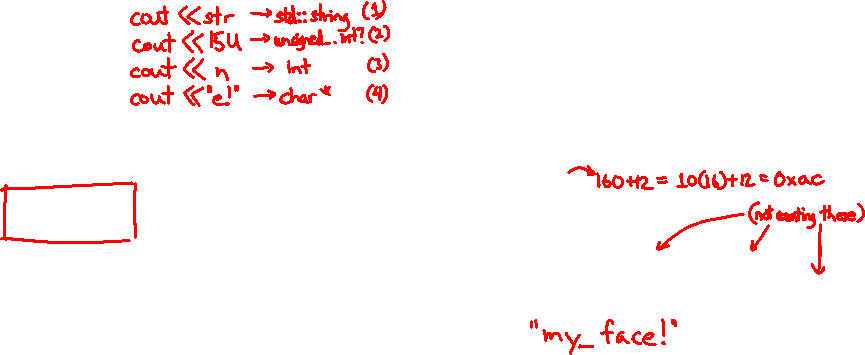 cout << str → std::string (1)
cout << 15U → unsigned int? (2)
cout << n → int (3)
cout << "e!" → char* (4)
160+12 = 10(16)+12 = 0xac
(not counting these)
"my_face!"